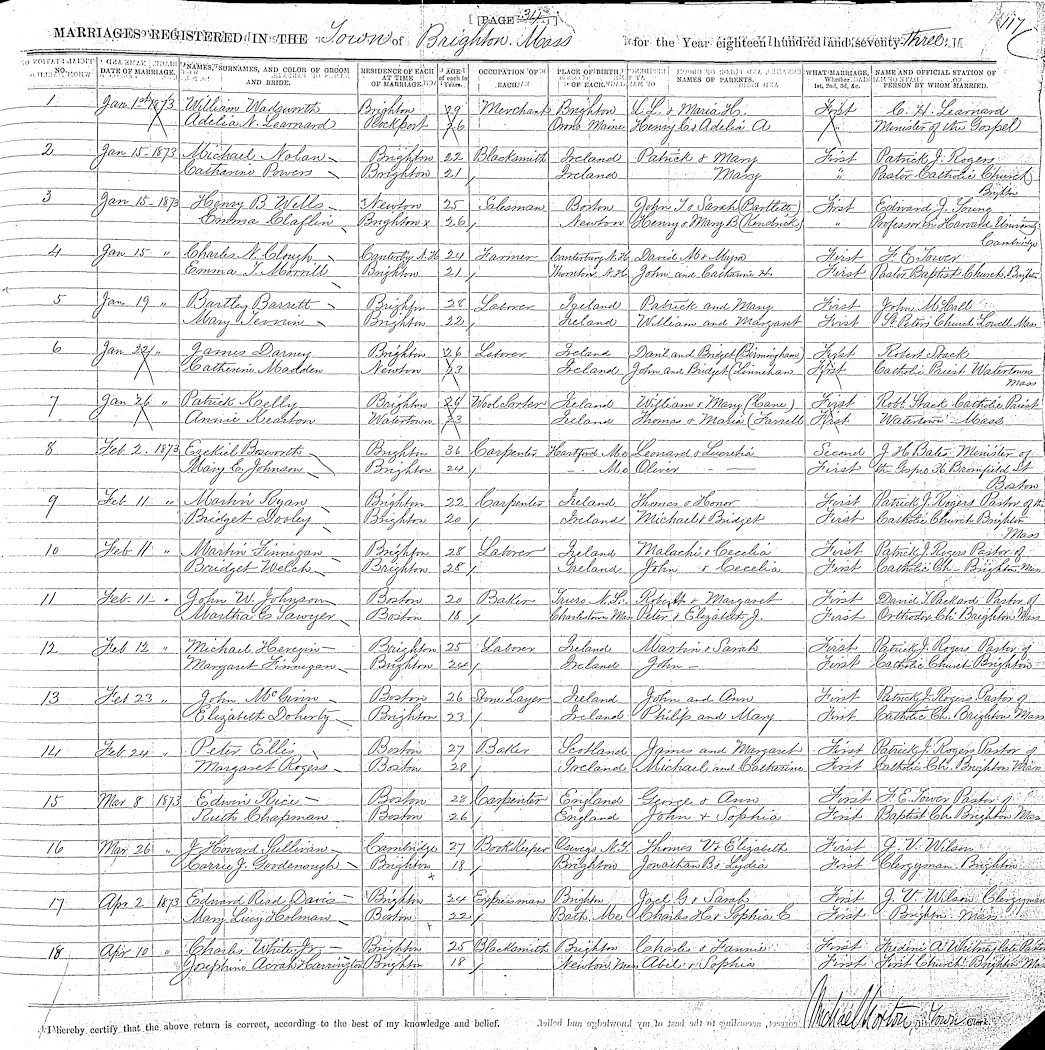 [PAGE 34]
117
MARRIAGES REGISTERED IN THE Town of Brighton Mass for the Year eighteen hundred and seventy-three.
No. DATE OF MARRIAGE. NAMES, SURNAMES, AND COLOR OF GROOM AND BRIDE. RESIDENCE OF EACH AT TIME OF MARRIAGE. AGE of each in Years. OCCUPATION OF EACH. PLACE OF BIRTH OF EACH. NAMES OF PARENTS. WHAT MARRIAGE, Whether 1st, 2nd, 3d, &c. NAME AND OFFICIAL STATION OF PERSON BY WHOM MARRIED.
1 Jan 1st 1873 William Wadsworth Brighton 29 Merchant Brighton L. L. & Maria H. First C. H. Learnard
Adelia N. Learnard Rockport 26 Orono Maine Henry C & Adelia A " Minister of the Gospel
2 Jan 15 - 1873 Michael Nolan Brighton 22 Blacksmith Ireland Patrick & Mary First Patrick J. Rogers
Catharine Powers Brighton 21 Ireland Mary " Pastor Catholic Church
Brighton
3 Jan 15 - 1873 Henry B. Wells Newton 25 Salesman Boston John T. & Sarah (Bartlett) First Edward J. Young
Emma Claflin Brighton x 26 Newton Henry & Mary B (Kendrick) " Professor in Harvard University
Cambridge
4 Jan 15 " Charles N. Clough Canterby N.H 24 Farmer Canterbury N.H David M & First F. E. Tower
Emma T. Morrill Brighton 21 Thornton N.H John and Catharine H. First Pastor Baptist Church Brighton
5 Jan 19 " Bartley Barrett Brighton 28 Laborer Ireland Patrick and Mary First John McHall
Mary Brighton 22 Ireland William and Margaret First St Peters Church Lowell Mass
6 Jan 22 " James Darney Brighton 26 Laborer Ireland Danil and Bridget (Birmingham) First Robert Stack
Catherine Madden Newton 23 Ireland John and Bridget (Linnehan First Catholic Priest Watertown
Mass
7 Jan 26 " Patrick Kelly Brighton 26 Wool Sorter Ireland William & Mary (Cane) First Robt Stack Catholic Priest
Annie Keaton Watertown 23 Ireland Thomas & Maria (Farrell First Watertown Mass
8 Feb 2. 1873 Ezekiel Bosworth Brighton 36 Carpenter Hartford Me Leonard & Lucretia Second J H Bates Minister of
Mary C. Johnson Brighton 24 Me Oliver First the Gospel Bromfield St
Boston
9 Feb 11 " Martin Ryan Brighton 22 Carpenter Ireland Thomas & Honor First Patrick J. Rogers Pastor of the
Bridget Dooley Brighton 20 Ireland Michael & Bridget First Catholic Church Brighton
Mass
10 Feb 11 " Martin Finnegan Brighton 28 Laborer Ireland Malachi & Cecelia First Patrick J. Rogers Pastor of
Bridget Welch Brighton 28 Ireland John & Cecelia First Catholic Ch - Brighton Mass
11 Feb 11 - " John W. Johnson Boston 20 Baker Truro N.S. Robert & Margaret First David T. Packard Pastor of
Martha E Sawyer Boston 18 Charlestown Mass Peter & Elizabeth J. First Orthodox Ch: Brighton Mass
12 Feb 12 " Michael Brighton 25 Laborer Ireland Martin & Sarah First Patrick J. Rogers Pastor of
Margaret Finnegan Brighton 24 Ireland John - First Catholic Church Brighton
13 Feb 23 " John McGivin Boston 26 Stone Layer Ireland John and Ann First Patrick J. Rogers Pastor of
Elizabeth Doherty Brighton 23 Ireland Philip and Mary First Catholic Ch. Brighton Mass
14 Feb 24 " Peter Ellis Boston 27 Baker Scotland James and Margaret First Patrick J. Rogers Pastor of
Margaret Rogers Boston 28 Ireland Michael and Catharine First Catholic Ch. Brighton Mass
15 Mar 8 1873 Edwin Rice Boston 28 Carpenter England George & Ann First F. E. Tower Pastor of
Ruth Chapman Boston 26 England John & Sophia First Baptist Ch. Brighton Mass
16 Mar 26 " J Howard Sullivan Cambridge 27 Book Keeper Oswego N.Y. Thomas V & Elizabeth First J. V. Wilson
Carrie J. Goodenough Brighton 18 Brighton Jonathan B & Lydia First Clergyman Brighton
17 Apr 2 1873 Edward Read Davis Brighton 24 Expressman Brighton Joel G & Sarah First J. V. Wilson Clergyman
Mary Lucy Holman Boston 22 Bath Me Charles H & Sophia E First Brighton Mass
18 Apr 10 " Charles White Jr. Brighton 25 Blacksmith Brighton Charles & Fannie First A Whitney late Pastor
Josephine Harrington Brighton 18 Newton Mass Abil & Sophia First First Church Brighton Mass
I hereby certify that the above return is correct, according to the best of my knowledge and belief. Michael Norton, Town Clerk.